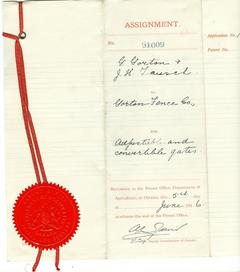 ASSIGNMENT.
Application No.
Patent No.
No. 91009
G Gorton &
J H Tausch
TO
Gorton Fence Co,
FOR
Adjustable and
convertible gates
RECORDED in the Patent Office, Department of
Agriculture, at Ottawa, this
June 191 6
as witness the seal of the Patent Office.
Commissioner of Patents.